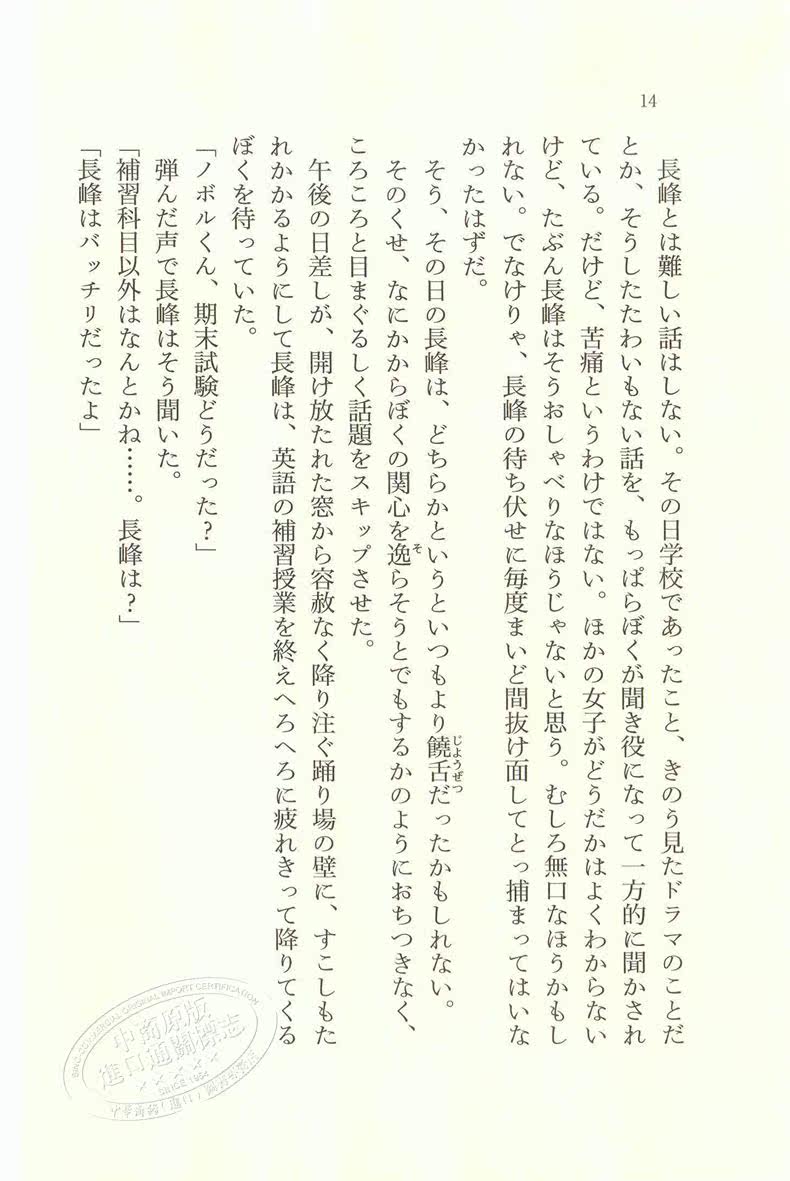 14
長峰とは難しい話はしない。その日学校であったこと、きのう見たドラマのことだ
とか、そうしたたわいもない話を、もっぱらぼくが聞き役になって一方的に聞かされ
ている。だけど、苦痛というわけではない。ほかの女子がどうだかはよくわからない
けど、たぶん長峰はそうおしゃべりなほうじゃないと思う。むしろ無口なほうかもし
れない。でなけりゃ、長峰の待ち伏せに毎度まいど間抜け面してとっ捕まってはいな
かったはずだ。
そう、その日の長峰は、どちらかというといつもより饒舌だったかもしれない。
じようぜつ
そのくせ、なにかからぼくの関心を逸らそうとでもするかのようにおちつきなく、
そ
ころころと目まぐるしく話題をスキップさせた。
午後の日差しが、開け放たれた窓から容赦なく降り注ぐ踊り場の壁に、すこしもた
れかかるようにして長峰は、英語の補習授業を終えへろへろに疲れきって降りてくる
ぼくを待っていた。
「ノボルくん、期末試験どうだった?」
弾んだ声で長峰はそう聞いた。
「補習科目以外はなんとかね……。長峰は?」
「長峰はバッチリだったよ」
SINO-COMMERCIAL ORIGINAL IMPORT CERTIFICATION
中商原版
進口通關標志
SINCE 1954